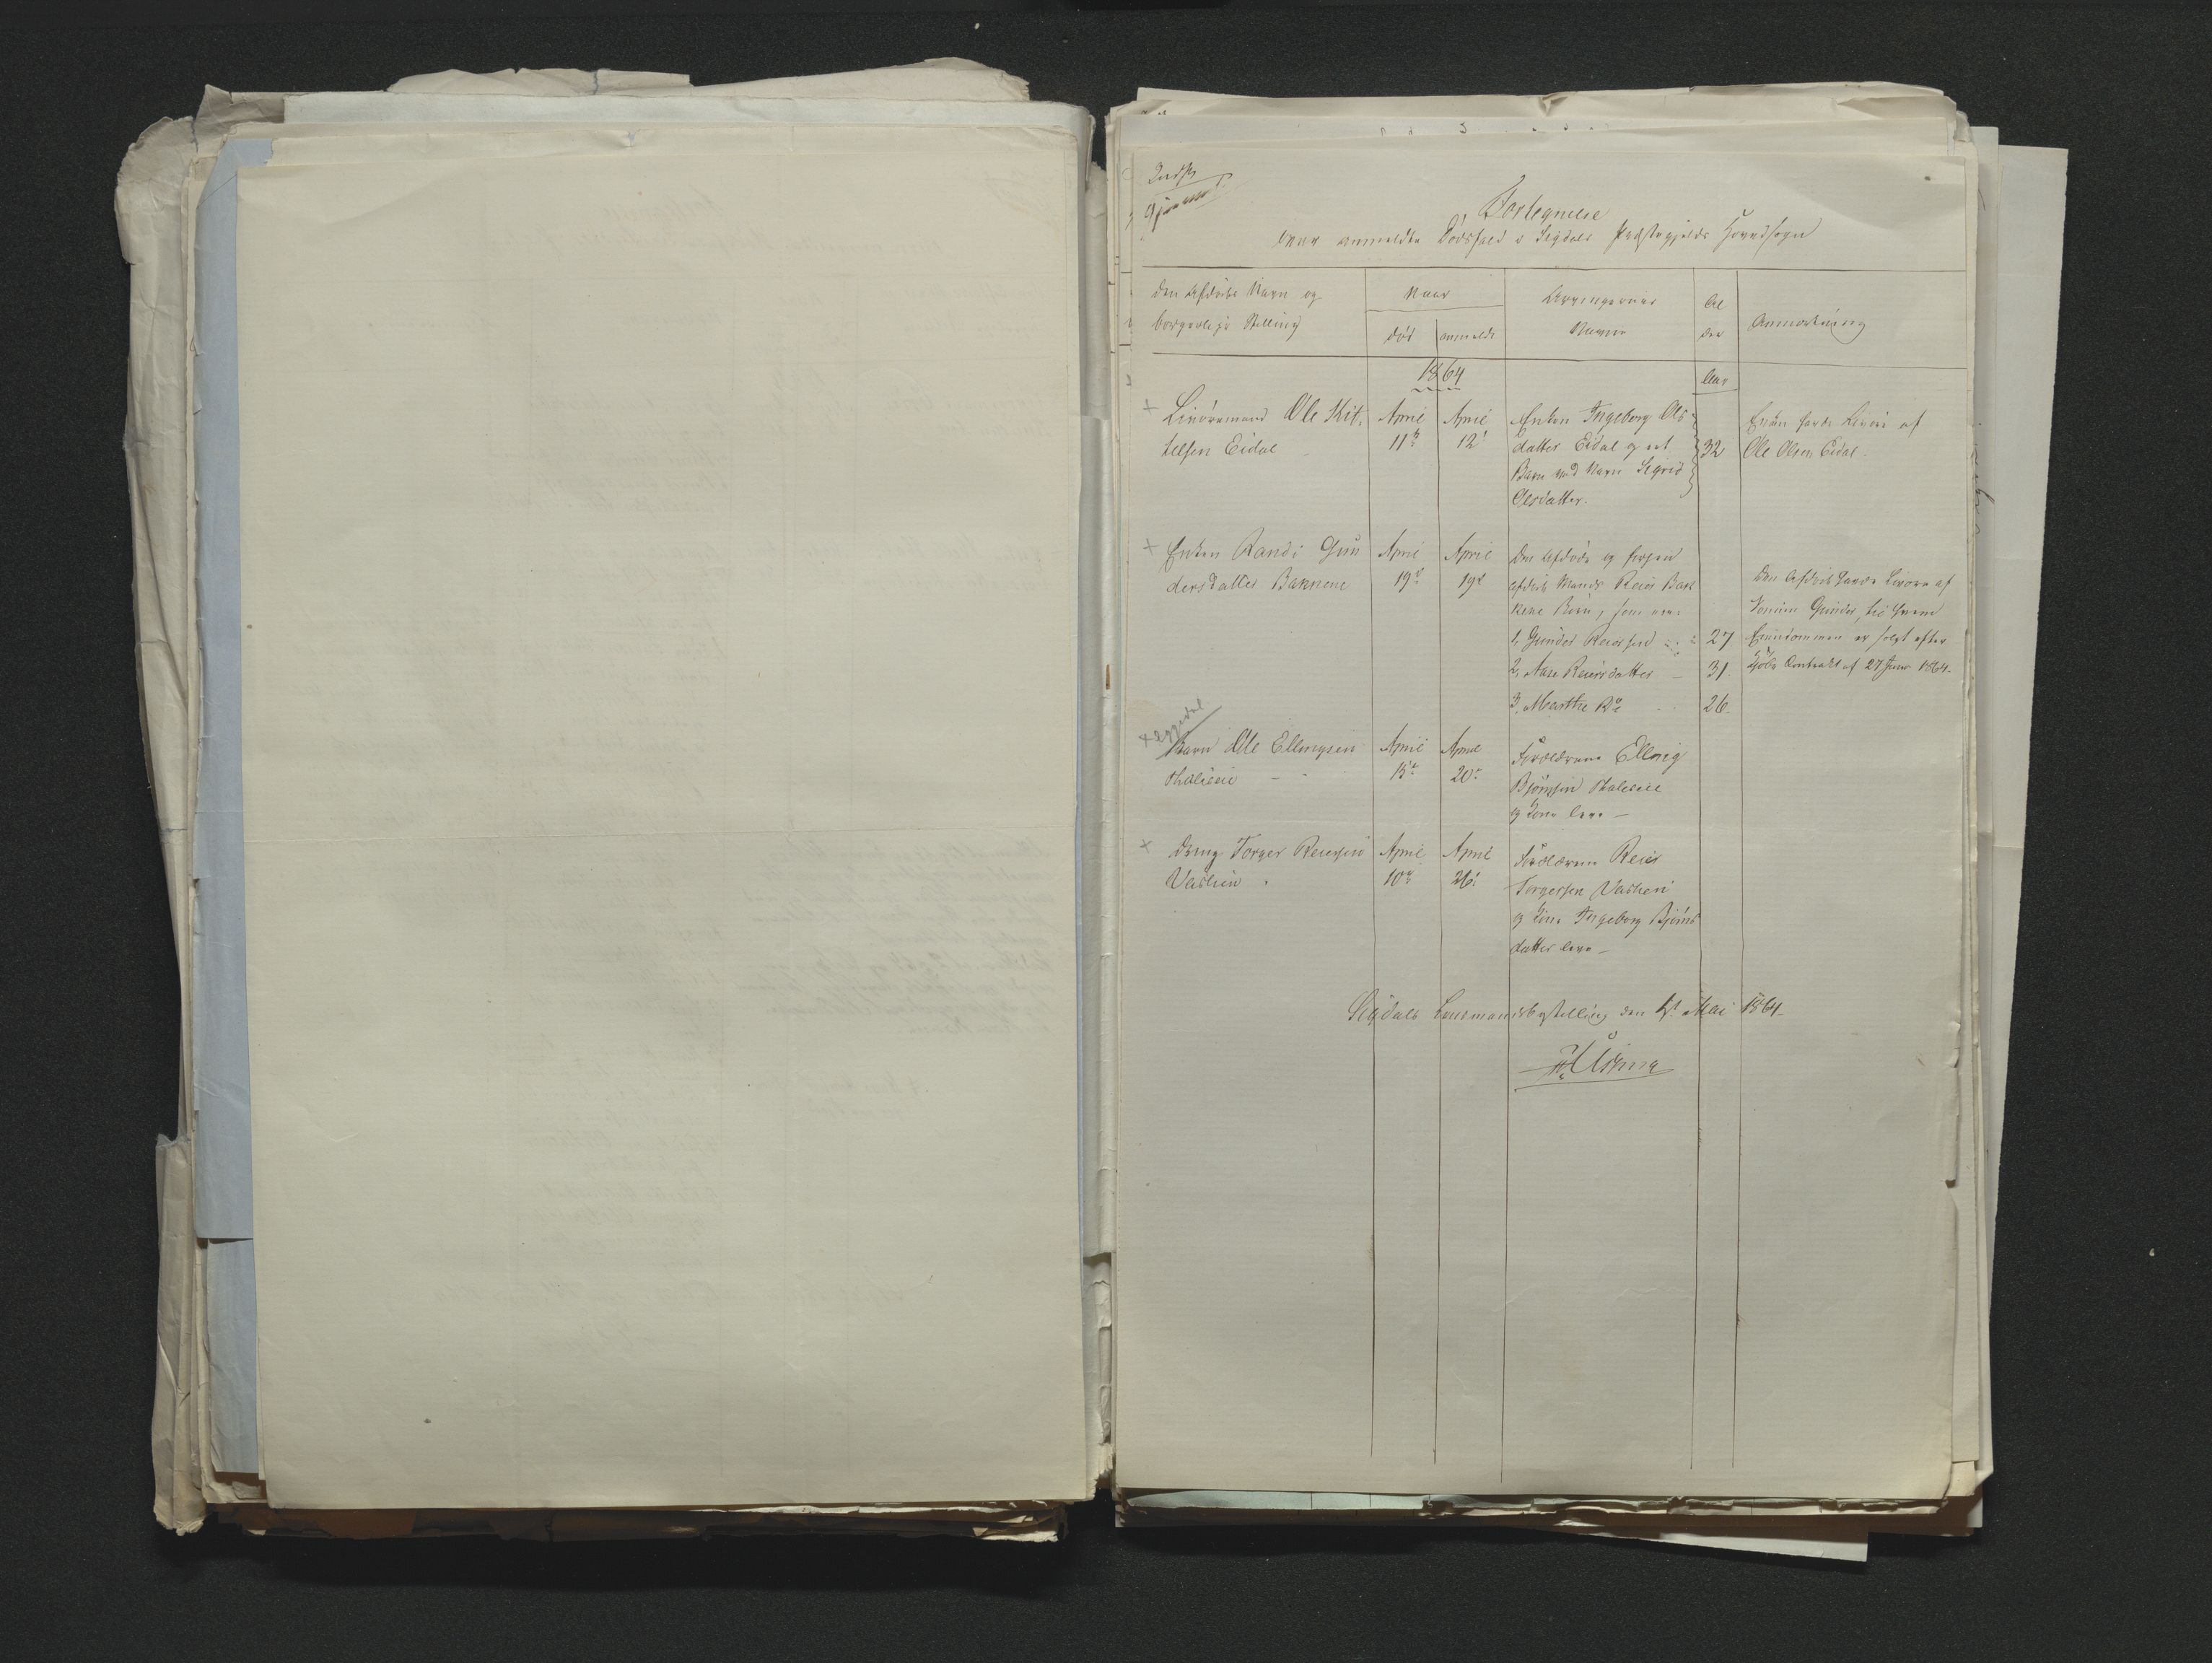 Fortegnelse
over anmeldte Dødsfald i Sigdals Præstegjelds Hovedsogn
Den Afdødes Navn og
borgerlige Stilling
Naar
død
anmeldt
Arvingernes
Navne
Al
der
Anmærkning
1864
Aar
+ Livøremand Ole Kit-
telsen Eidal
April
11te
April
12te
Enken Ingeborg Ols
datter Eidal og et
Barn ved Navn Sigrid
Olsdatter.
32
Enken havde Livøre af
Ole Olsen Eidal.
+ Enken Randi Gun
dersdatter Bakkene
April
19de
April
19de
Den Afdøde og forhen
afdøde Mands Reier Bak
kene Børn, som ere:
1, Gunder Reiersen
27
2, Aase Reiersdatter
31
3, Marthe Do
26
Den Afdøde havde Livøre af
Sønnen Gunder, til hvem
Eiendommen er solgt efter
Kjøbe Contrakt af 27 Janr 1864.
+ Eggedal
Barn Ole Ellingsen
April
15de
April
20de
Forældrene Elling
Bjørnsen
og Kone leve
+ Dreng Torger Reiersen
Vaslien
April
10de
April
26de
Forældrene Reier
Torgersen Vaslien
og Kone Ingeborg Bjørns
datter leve
Sigdals Lensmandsbestilling den 1st Mai 1864